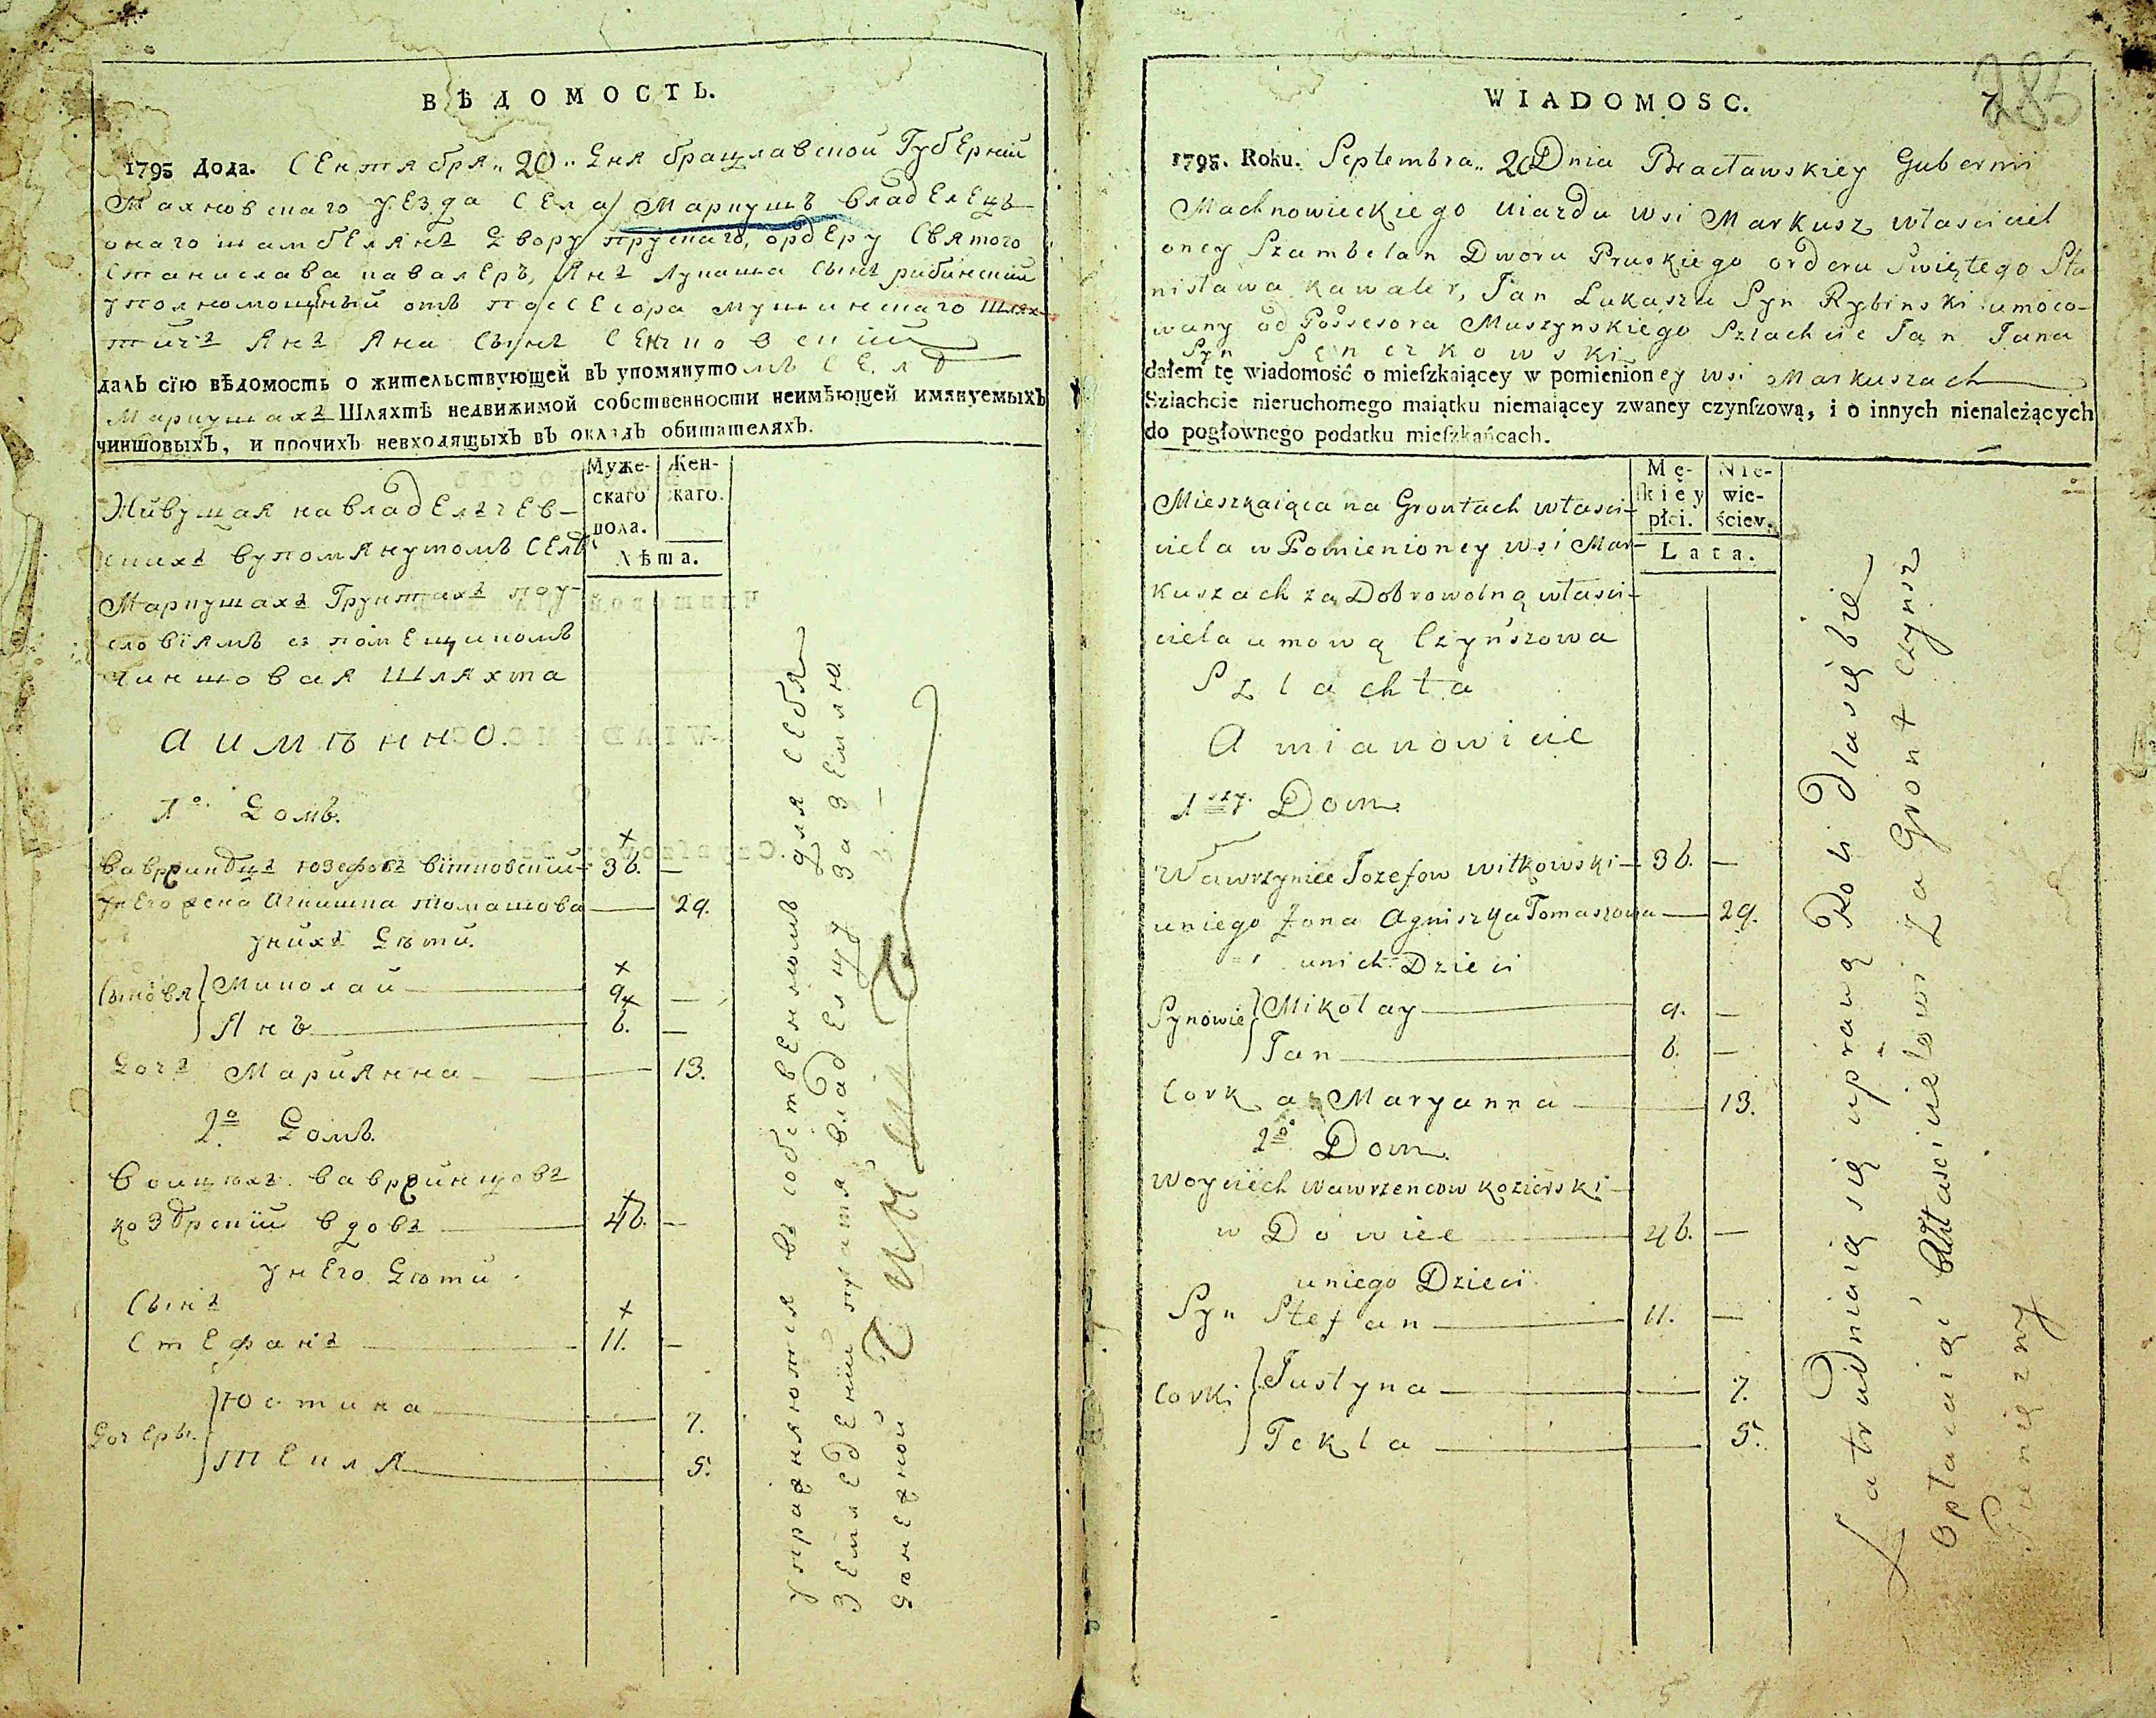 ВѢДОМОСТЬ.
1795 Года. Сентября „20„ Дня брацлавской Губернїи
Махновскаго уезда села Маркушъ владелецъ
онаго шамбелянъ двору прускаго, ордеру Святого
Станислава кавалеръ, Янъ Лукаша сынъ рибинскїй
уполномощный отъ поссесора мушинскаго шлях-
тичъ Янъ Яна сынъ сенчковскїй
далъ сїю вѣдомость о жительствующей въ упомянутомъ селѣ
Маркушахъ Шляхтѣ недвижимой собственности неимѣющей имянуемыхъ
чиншовыхъ, и прочихъ невходящыхъ въ окладъ обитателяхъ.
Муже-
скаго
пола.
Жен-
скаго.
Лѣта.
Живущая на владелчев-
скихъ в упомянутомъ селѣ
Маркушахъ Грунтахъ по у-
словїямъ с помещикомъ
Чиншовая шляхта
а имѣнно.
1о. Домъ.
Вавржинецъ юзефовъ витковскїй — 36. —
у него жена Агнишка томашова — 29.
у нихъ дѣти.
Сыновя Миколай — 9 —
Янъ — 6. —
Дочъ Мариянна — 13.
2о. Домъ.
Войцехъ вавржинцовъ
козѣрскїй вдовъ — 46. —
у него дѣти.
Сынъ
Стефанъ — 11. —
Дочеры Юстина — 7.
Текля — 5.
упражняются въ собственномъ для себя
земледенїи платя владелцу за землю
денежной чиншъ
WIADOMOSC.
7
285
1795. Roku. Septembra „ 20 Dnia Bracławskiey Gubernii
Machnowieckiego uiazdu wsi Markusz właściciel
oney Szambelan Dworu Pruskiego orderu Świętego Sta
nisława kawaler, Jan Łukasza Syn Rybinski umoco-
wany od Possesora Muszynskiego Szlachcic Jan Jana
Syn Sęnczkowski
dałem tę wiadomość o mieſzkaiącey w pomienioney wsi Markuszach
Szlachcie nieruchomego maiątku niemaiącey zwaney czynſzową, i o innych nienależących
do pogłownego podatku mieſzkańcach.
Mę-
ſkiey
płci.
Nie-
wie-
ściey.
Lata.
Mieszkaiąca na Grontach właści-
ciela w Pomienioney wsi Mar-
kuszach za Dobrowolną właści-
ciela umową Czynszowa
Szlachta
A mianowicie
1szy. Dom.
Wawrzyniec Jozefow witkowski — 36. —
uniego Żona Agniszka Tomaszowa — 29.
unich Dzieci
Synowie Mikołay — 9. —
Jan — 6. —
Corka Maryanna — 13.
2o. Dom.
Woyciech wawrzencow kozierski —
wdowiec — 46. —
uniego Dzieci
Syn Stefan — 11. —
Corki Justyna — 7.
Tekla — 5.
Zatrudniaią się uprawą Roli dla siębie
Opłacaiąc Właścicielowi za Gront czynsz
Pienięzny